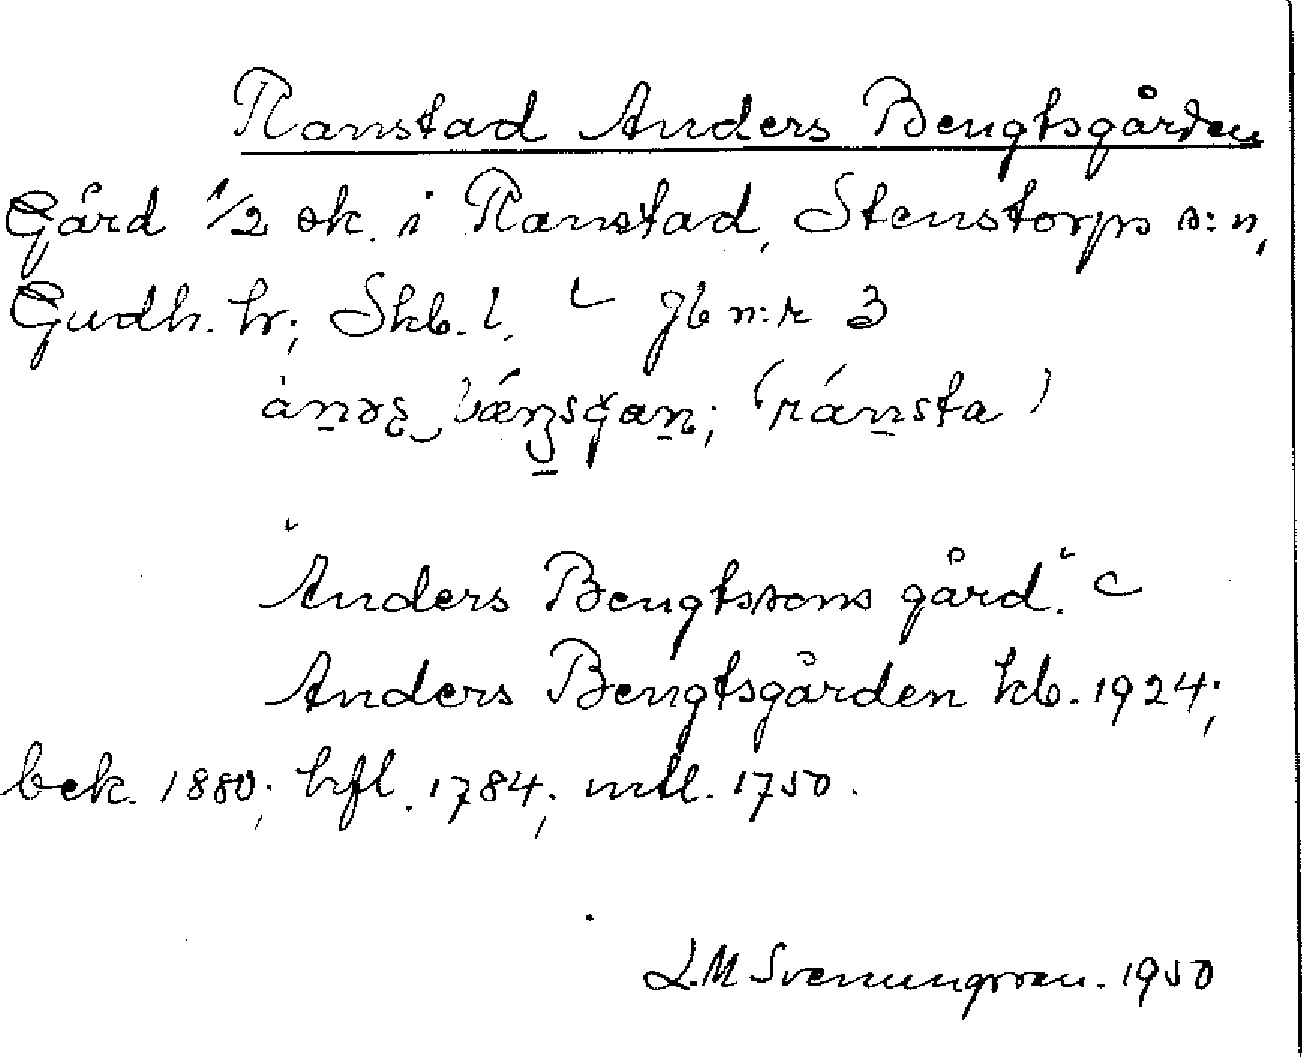 Ranstad Anders Bengtsgården
Gård 1/2 sk. i Ranstad, Stenstorps s:n,
Gudh. hr; Skb. l. gb n:r 3
ànǝʂ bǽŋsgan; (ránsta)
"Anders Bengtssons gård."
Anders Bengtsgården kb. 1924;
bek. 1880; hfl. 1784; mtl. 1750.
L. M Svenungsson. 1950